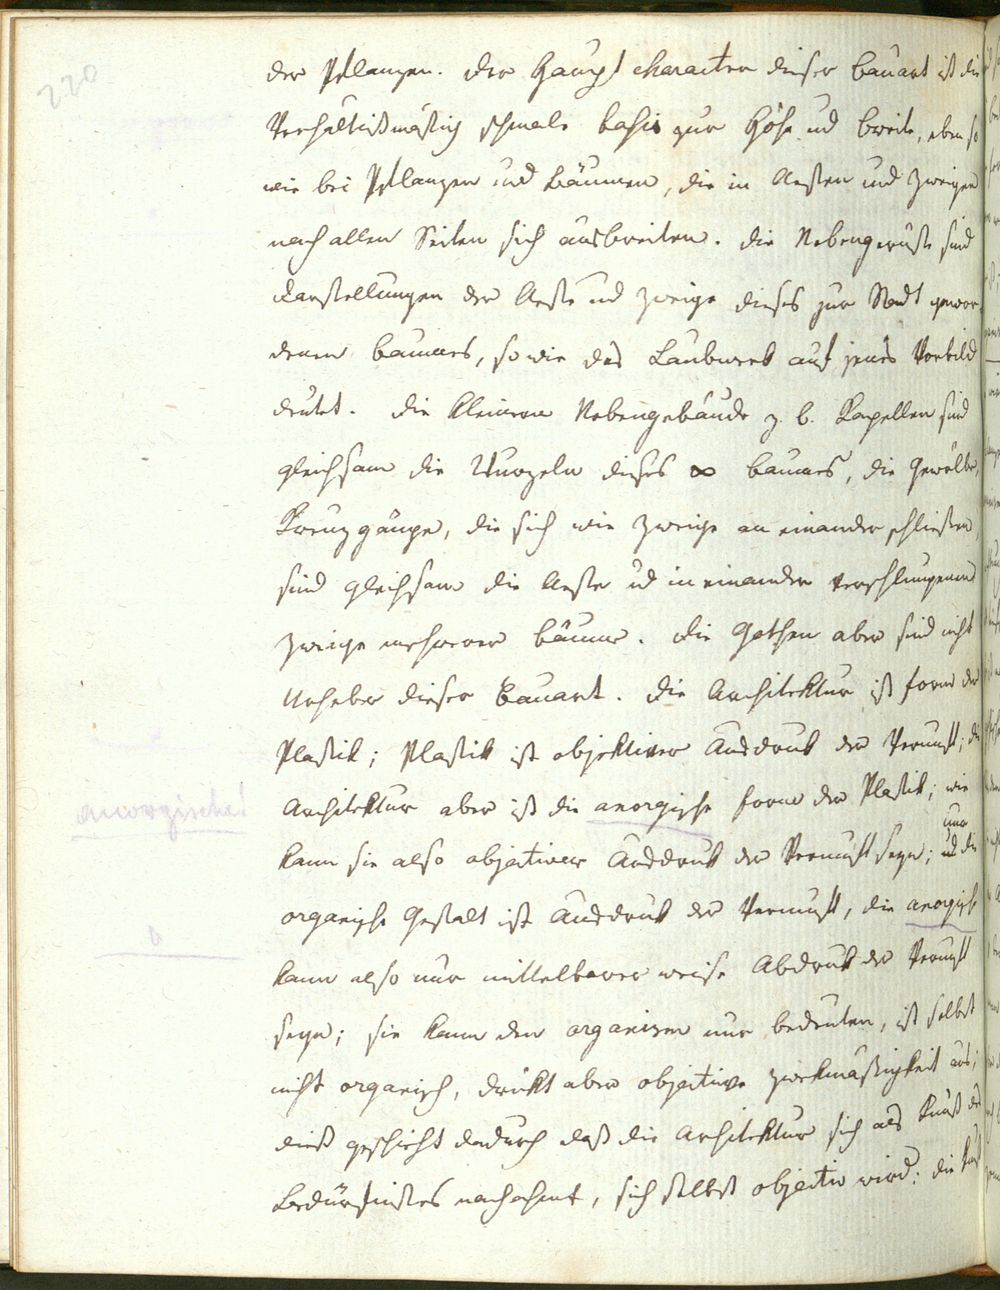 220
der Pflanzen. Der Haupt character dieser Bauart ist die
Verhältnißmäßig schmale basis zur Höhe und breite, eben so
wie bei Pflanzen und Bäumen, die in Aesten und Zweigen
nach allen Seiten sich ausbreiten. Die Nebengerüste sind
Darstellungen der Aeste und Zweige dieses zur Stadt gewor-
denen Baumes, so wie das Laubwerk auf jenes Vorbild
deutet. Die kleinern Nebengebäude z. b. Kapellen sind
gleichsam die Wurzeln dieses ∞ Baumes, die Gewölbe,
Kreuzgänge, die sich wie Zweige an einander schließen,
sind gleichsam die Aeste und in einander verschlungenen
Zweige mehrerer Bäume. Die Gothen aber sind nicht
Urheber dieser Bauart. Die Architektur ist form der
Plastik; Plastik ist objektiver Ausdruk der Vernunft; die
Architektur aber ist die anorgische form der Plastik; wie
anorgische!
kann sie also objectiver Ausdruk der Vernunft seyn; nur die
organische Gestalt ist Ausdruk der Vernunft, die anorgische
kann also nur mittelbarer weise Abdruk der Vernunft
seyn; sie kann den organism nur bedeuten, ist selbst
nicht organisch, drükt aber objective Zwekmäßigkeit aus;
dieß geschieht dadurch daß die Architektur sich als Kunst des
Bedürfnißes nachahmt, sich selbst objectiv wird: die